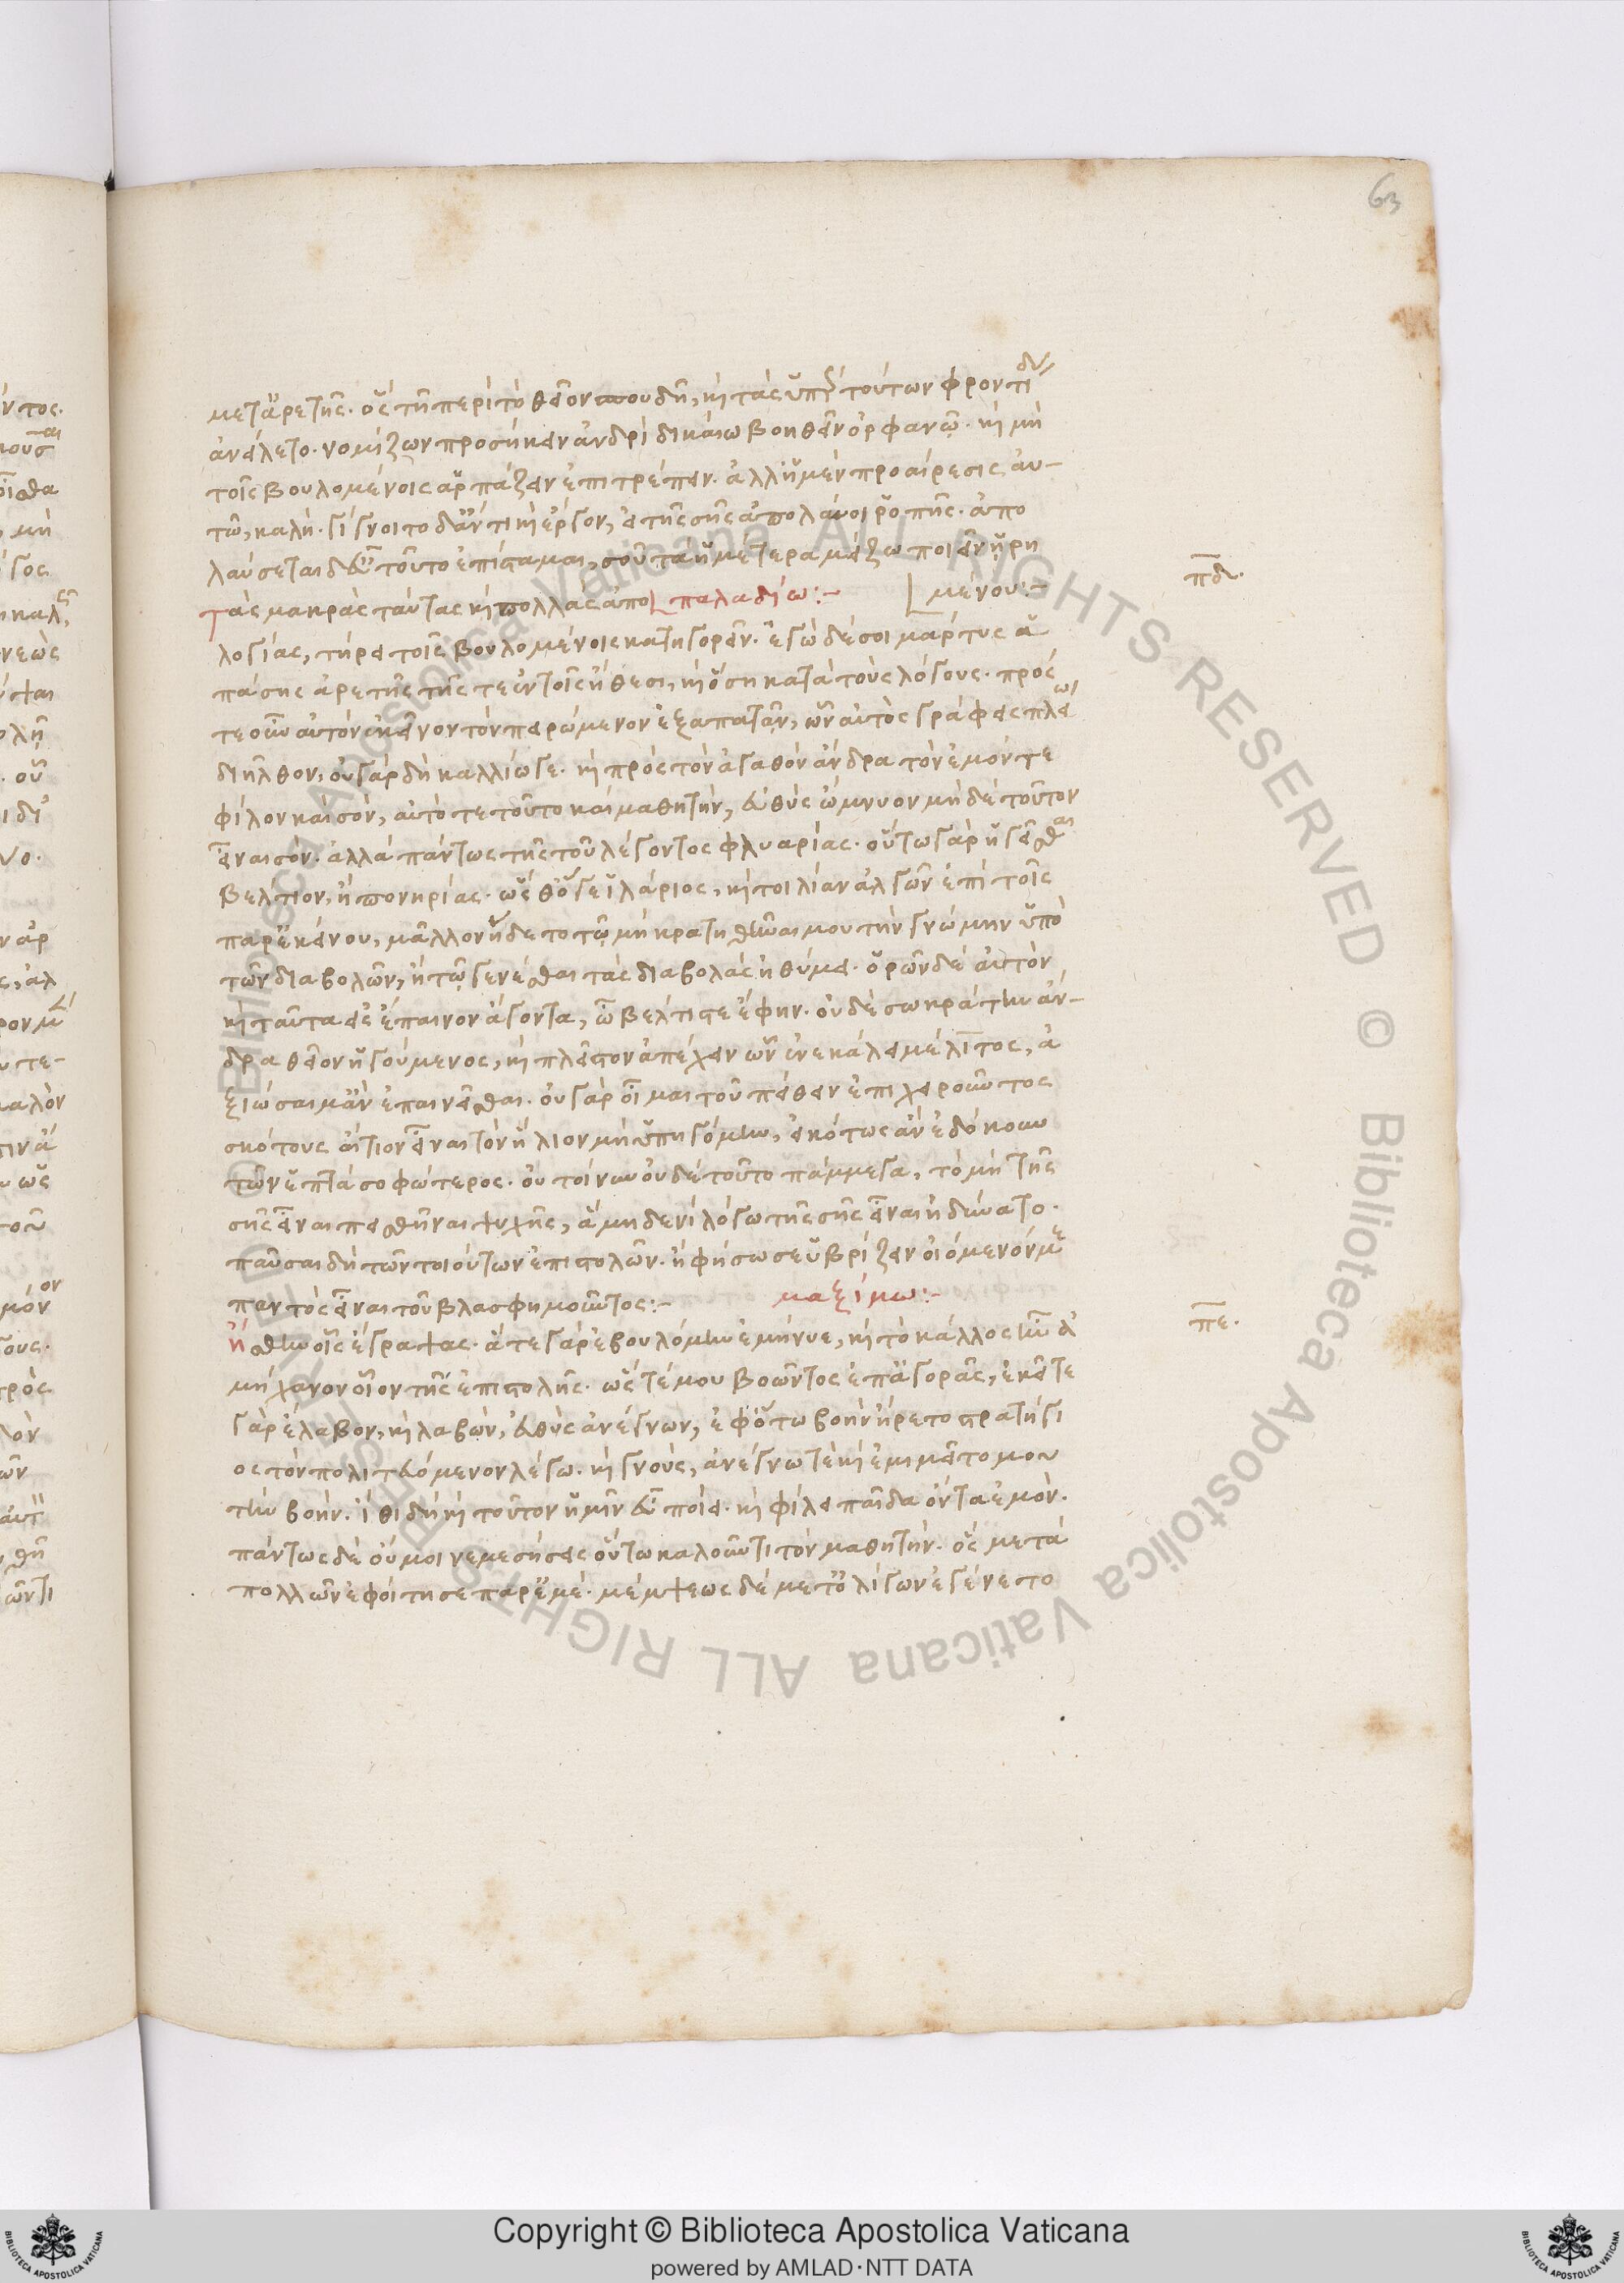 63
μετ' ἀρετῆς. ὃς τῆ περὶ τὸ θεῖον σπουδῆ, κ(αὶ) τὰς ὑπ(ὲρ) τούτων φροντίδ(ας)
ἀνείλετο. νομίζων προσήκειν ἀνδρὶ δικαίω βοηθεῖν ὀρφανῶ. κ(αὶ) μὴ
τοῖς βουλομένοις ἁρπάζειν ἐπιτρέπειν. ἀλλ' ἡ μὲν προαίρεσις αὐ-
τῶ, καλή. γίγνοιτο δ' ἄν τι κ(αὶ) ἔργον, εἰ τῆς σῆς ἀπολαύοι ῥοπῆς. ἀπο
λαύσεται δ' εὖ τοῦτο ἐπίσταμαι, σοῦ τὰ ἡμέτερα μείζω ποιεῖν ἡρη
μένου:-
πδ.
παλαδίω:-
Τὰς μακρὰς ταύτας κ(αὶ) πολλὰς ἀπο
λογίας, τήρει τοῖς βουλομένοις κατηγορεῖν. ἐγὼ δέ σοι μάρτυς ἁ
πάσης ἀρετῆς τῆς τε ἐν τοῖς ἤθεσι, κ(αὶ) ὅση κατὰ τοὺς λόγους. πρός
τε οὖν αὐτὸν ἐκεῖνον τὸν πειρώμενον ἐξαπατᾶν, ὧν αὐτὸς γράφεις πλείω
διῆλθον, οὐ γὰρ δὴ καλλίω γε. κ(αὶ) πρὸς τὸν ἀγαθὸν ἄνδρα τὸν ἐμόν τε
φίλον καὶ σὸν, αὐτό τε τοῦτο καὶ μαθητὴν, εὐθὺς ὤμνυον μηδὲ τοῦτον
εἶναι σόν. ἀλλὰ πάντως τῆς τοῦ λέγοντος φλυαρίας. οὕτω γὰρ ἡγεῖσθαι
βέλτιον, ἢ πονηρίας. ὥσθ' ὅ γε ἱλάριος, κ(αί)τοι λίαν ἀλγῶν ἐπὶ τοῖς
παρ' ἐκείνου, μᾶλλον ἥδετο τῶ μὴ κρατηθῆναί μου τὴν γνώμην ὑπὸ
τῶν διαβολῶν, ἢ τῶ γενέσθαι τὰς διαβολὰς ἠθύμει. ὁρῶν δὲ αὐτὸν
κ(αὶ) ταῦτα εἰς ἔπαινον ἄγοντα, ὦ βέλτιστε ἔφην. οὐδὲ σωκράτην ἄν-
δρα θεῖον ἡγούμενος, κ(αὶ) πλεῖστον ἀπέχειν ὧν ἐνεκάλει μέλιτος, ἀ
ξιώσαιμ' ἂν ἐπαινεῖσθαι. οὐ γὰρ οἶμαι τοῦ πείθειν ἐπιχειροῦντος
σκότους αἴτιον εἶναι τὸν ἥλιον μὴ ἡττηγόμην, εἰκότως ἂν ἐδόκουν
τῶν ἑπτὰ σοφώτερος. οὐ τοίνυν οὐδὲ τοῦτο πάμμεγα, τὸ μὴ τῆς
σῆς εἶναι πεισθῆναι ψυχῆς, ἃ μηδενὶ λόγω τῆς σῆς εἶναι ἠδύνατο.
παῦσαι δὴ τῶν τοιούτων ἐπιστολῶν. ἢ φήσω σε ὑβρίζειν οἰόμενόν με
παντὸς εἶναι τοῦ βλασφημοῦντος:-
μαξίμω:-
πε.
Ἥσθην οἷς ἔγραψας. ἅ τε γὰρ ἐβουλόμην ἐμήνυε, κ(αὶ) τὸ κάλλος ἦν ἀ
μήχανον οἷον τῆς ἐπιστολῆς. ὥστ' ἐμοῦ βοῶντος ἐπ' ἀγορᾶς, ἐκεῖ τε
γὰρ ἔλαβον, κ(αὶ) λαβὼν, εὐθὺς ἀνέγνων, ἐφ' ὅτω βοὴν ἤρετο στρατήγι
ος τὸν πολιτευόμενον λέγω. κ(αὶ) γνοὺς, ἀνέγνω τὲ κ(αὶ) ἐμιμεῖτό μου
τὴν βοήν. ἴθι δὴ κ(αὶ) τοῦτον ἡμῖν εὖ ποίει. κ(αὶ) φίλει παῖδα ὄντα ἐμόν.
πάντως δὲ οὔ μοι νεμεσήσεις οὕτω καλοῦντι τὸν μαθητήν. ὃς μετὰ
πολλῶν ἐφοίτησε παρ' ἐμέ. μέμψεως δὲ μετ' ὀλίγων ἐγένετο
Copyright © Biblioteca Apostolica Vaticana
powered by AMLAD·NTT DATA